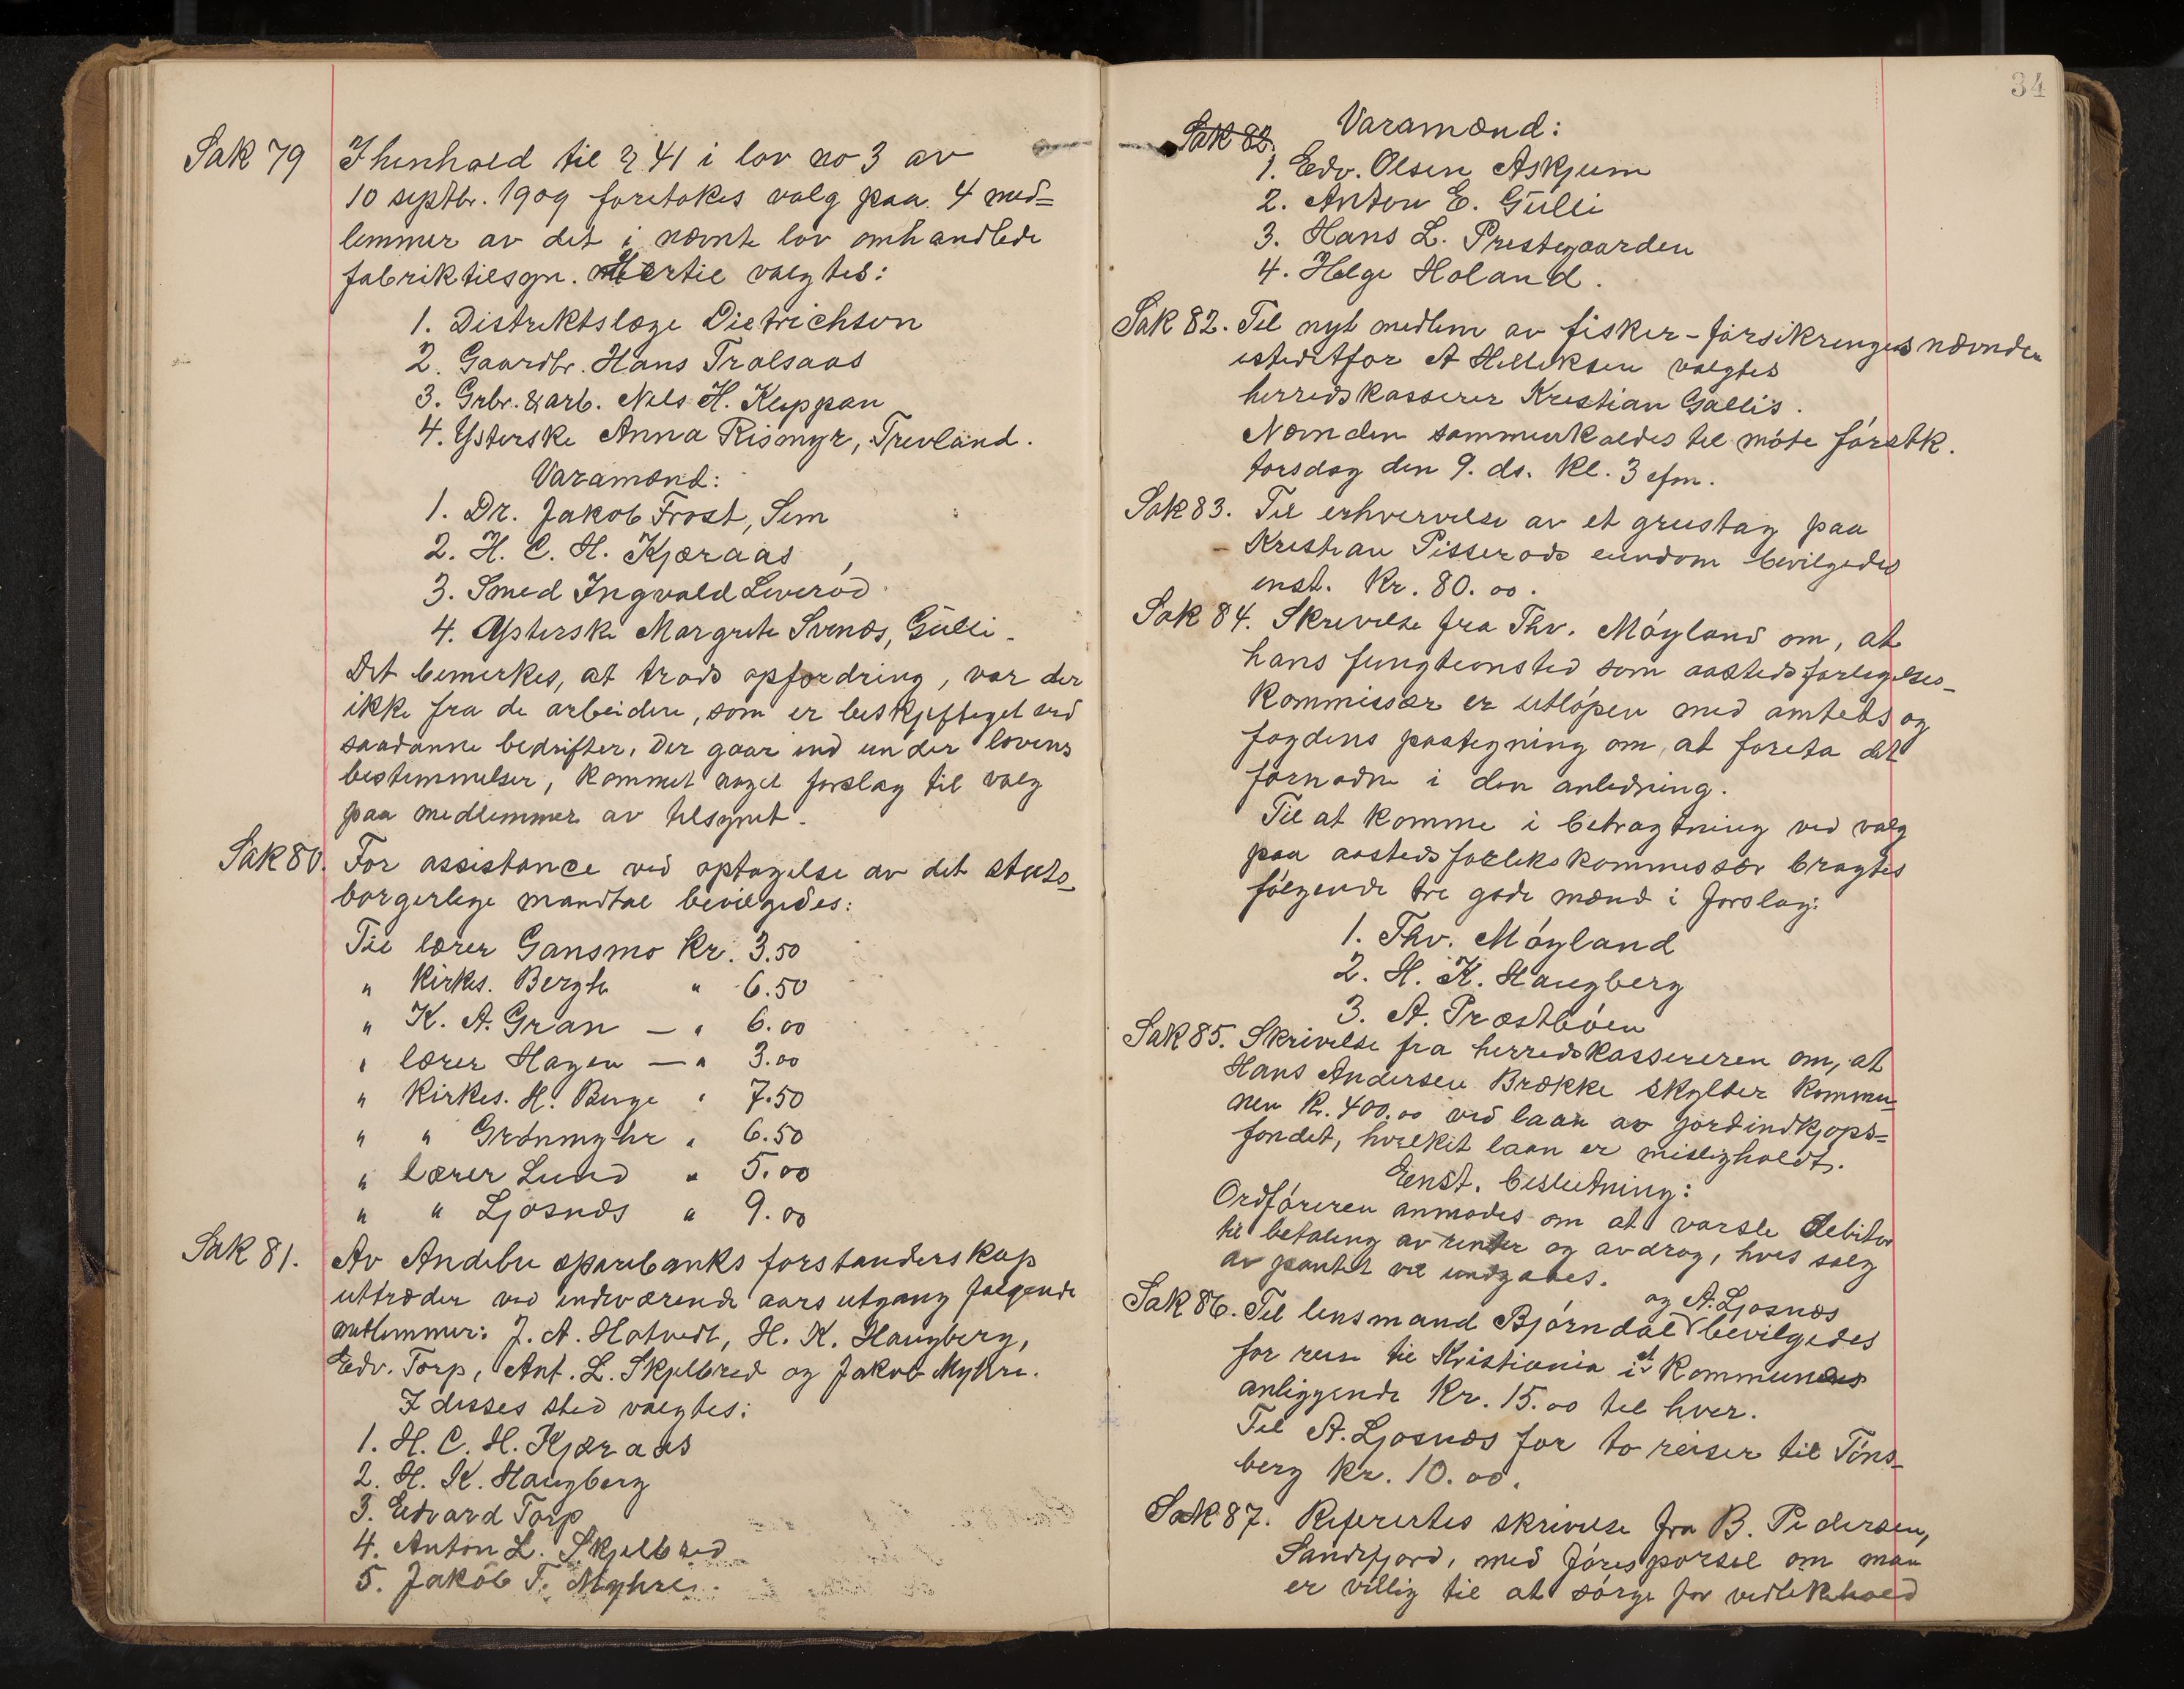 Sak 79
I henhold til § 41 i lov no 3 av
10 septbr. 1909 foretokes valg paa 4 med=
lemmer av det i nævnte lov omhandlede
fabriktilsyn. Hertil valgtes:
1. Distriktslæge Dietrichson
2. Gaardbr. Hans Trolsaas
3. Grbr. & arb. Nils H. Kleppan
4. Ysterske Anna Rismyr, Trevland.
Varamænd:
1. Dr. Jakob Frost, Sem
2. H. C. H. Kjæraas
3. Smed Ingvald Leverød
4. Ysterske Margrete Svenøs, Gulli.
Det bemerkes, at trods opfordring, var der
ikke fra de arbeidere, som er beskjeftiget ved
saadanne bedrifter, der gaar ind under lovens
bestemmelser, kommet noget forslag til valg
paa medlemmer av tilsynet.
Sak 80.
For assistance ved optagelse av det stats-
borgerlige mandtal bevilgedes:
Til lærer Gansmo Kr. 3.50
" Kirkes. Bergh " 6.50
" K. A. Gran — " 6.00
" lærer Hagen — " 3.00
" Kirkes. H. Berge " 7.50
" " Grønmyhr " 6.50
" lærer Lund " 5.00
" " Ljosnæs " 9.00
Sak 81.
Av Andebu sparebanks forstanderskap
uttræder ved indeværende aars utgang følgende
medlemmer: J. A. Hotvedt, H. K. Haugberg,
Edv. Torp, Ant. L. Skjelbred og Jakob Myhre.
I disses sted valgtes:
1. H. C. H. Kjæraas
2. H. K. Haugberg
3. Edvard Torp
4. Anton L. Skjelbred
5. Jakob T. Myhre.
34
Sak 82.
Varamænd:
1. Edv. Olsen Askjum
2. Anton E. Gulli
3. Hans L. Prestegaarden
4. Helge Holand.
Sak 82. Til nyt medlem av fisker-forsikringsnævnden
istedetfor A Helliksen valgtes
herredskasserer Kristian Gallis.
Nævnden sammenkaldes til møte førstk.
torsdag den 9. ds. Kl. 3 efm.
Sak 83. Til erhvervelse av et grustag paa
Kristian Pisserøds eiendom bevilgedes
enst. Kr. 80.00.
Sak 84. Skrivelse fra Thv. Møyland om, at
hans fungtionstid som aastedsforligelses-
kommissær er utløpen med amtets og
fogdens paategning om, at foreta det
fornødne i den anledning.
Til at komme i betragtning ved valg
paa aastedsforlikskommissær bragtes
følgende tre gode mænd i forslag:
1. Thv. Møyland
2. H. K. Haugberg
3. A. Præstbøen
Sak 85. Skrivelse fra herredskassereren om, at
Hans Andersen Brække skylder kommu-
nen Kr. 400.00 ved laan av jordindkjøps=
fondet, hvilket laan er misligholdt.
Eenst. beslutning:
Ordføreren anmodes om at varsle debitor
til betaling av renter og avdrag, hvis salg
av pantet vil undgaaes.
og A. Ljosnæs
Sak 86. Til lensmand Bjørndal bevilgedes
for reise til Kristiania i et kommunens
anliggende Kr. 15.00 til hver.
Til A. Ljosnæs for to reiser til Tøns-
berg Kr. 10.00.
Sak 87. Referertes skrivelse fra B. Pedersen,
Sandefjord, med forespørsel om man
er villig til at sørge for vedlikehold